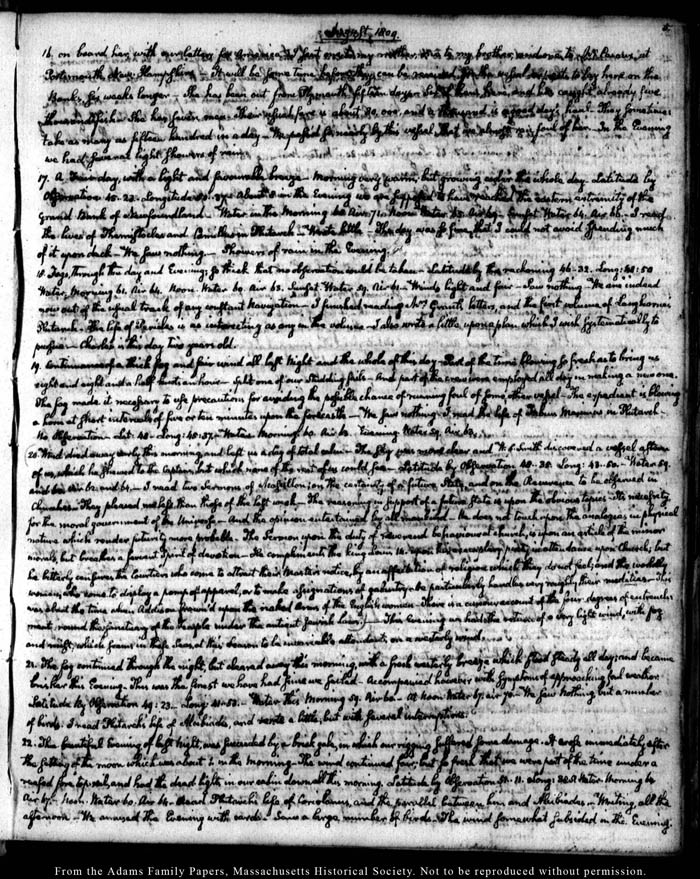 August, 1809.
16. on board her, with our letters for America. I sent one to my mother, one to my brother, and one to at
Portsmouth, New Hampshire — It will be some time before they can be received, for the vessel expects to lay here on the
Banks, six weeks longer — She has been out from Plymouth fifteen days and has caught already five
thousand fish. She has seven men. Their is about and a thousand is a good day's haul. They sometimes
take as many as fifteen hundred in a day — We passed so nearly by this vessel that we almost ran foul of her. In the Evening
we had several light showers of rain.
17. A Fair day, with a light and favourable breeze — Morning very warm, but growing cooler the whole day. Latitude by
Observation Longitude About 8 in the Evening we are supposed to have reached the eastern extremity of the
Grand Bank of Newfoundland. Water in the Morning Air 71. Noon Water Air Sunset Water 64. Air 66. I read
the lives of Themistocles and Camillus in Plutarch — Wrote little — The day was so fine, that I could not avoid spending much
of it upon deck — We saw nothing — Showers of rain in the Evening.
18. Fogs, through the day and Evening; so thick that no observation could be taken — Latitude by the reckoning 46-32. Long: 48:50
Water, Morning 61. Air 64. Noon. Water 60. Air 63. Sunset Water 59. Air 61 — Winds light and fair — Saw nothing — We are indeed
now out of the usual track of any constant Navigation — I finished reading letters, and the first volume of Langhorne's
Plutarch. The life of Pericles is as interesting as any in the volume — I also wrote a little, upon a plan which I wish systematically to
pursue — Charles is this day two years old.
19. Continuance of a thick fog and fair wind all last Night and the whole of this day — Part of the time blowing so fresh as to bring us
eight and eight and a half knots an hour — Split one of our studding sails. And part of the crew were employed all day in making a new one.
The fog made it necessary to use precaution for avoiding the possible chance of running foul of some other vessel — The expedient is blowing
a horn at short intervals of five or ten minutes upon the forecastle — We saw nothing — I read the life of Fabius Maximus in Plutarch —
No Observation — Lat: 48 — Long: 46:37 — Water Morning 60. Air 62. Evening Water 59. Air 62.
20. Wind died away early this morning, and left us a day of total calm — The sky was more clear and W. S. Smith discovered a vessel astern
of us, which he shewed to the Captain, but which none of the rest of us could see — Latitude by Observation 48-35. Long: 43-50. — Water 59.
and 60. Air 62 and 64. — I read two Sermons of Massillon; on the certainty of a future State, and on the Reverence to be observed in
Churches — They pleased me less than those of the last week — The reasoning in support of a future State is upon the obvious topics — Its necessity
for the moral government of the Universe — And the opinion entertained by all mankind — He does not touch upon the analogies in physical
nature which render futurity more probable. The Sermon upon the duty of reverend behaviour at church, is upon an article of the minor
morals, but breathes a fervent spirit of devotion — He compliments the king Louis 14. upon his exemplary punctual attendance upon Church, but
he bitterly censures the Courtiers who come to attract their Master's notice, by an affectation of religion which they do not feel; and the worldly
women, who come to display a pomp of apparel, or to make assignations of gallantry — he particularly handles very roughly, their nudities — This
was about the time when Addison frown'd upon the naked Arms of the English women — There is a curious account of the four degrees of
round the Sanctuary of the People under the antient Jewish law — This evening we had the return of a very light wind, with fog
and mist, which seems in these Seas at this Season to be invariable attendants on a westerly wind.
21. The fog continued through the night, but cleared away this morning, with a fresh westerly breeze which stood steady all day; and became
brisker this Evening — This was the finest we have had since we sailed — Accompanied however with symptoms of approaching foul weather
Latitude by Observation 49:23 — Long: 41-50. — Water this Morning 59. Air 60 — At Noon Water 61, air 70 — We saw nothing but a number
of birds. I read Plutarch's life of Alcibiades, and wrote a little, but with several interruptions.
22. The beautiful Evening of last Night, was succeeded by a brisk gale, in which our rigging suffered some damage — It arose immediately after
the setting of the moon which was about 2. in the Morning — The wind continued fair, but so fresh that we were part of the time under a
reefed fore, top sail, and had the dead lights in our cabin down all this morning. Latitude by Observation 50. 11. Long: Water Morning 60
Air 67. Noon. Water 60. Air 64. Read Plutarch's life of Coriolanus, and the parallel between him and Alcibiades — Writing, all the
afternoon — We amused the Evening with cards — Saw a large number of birds. The wind somewhat subsided in the Evening.
From the Adams Family Papers, Massachusetts Historical Society. Not to be reproduced without permission.